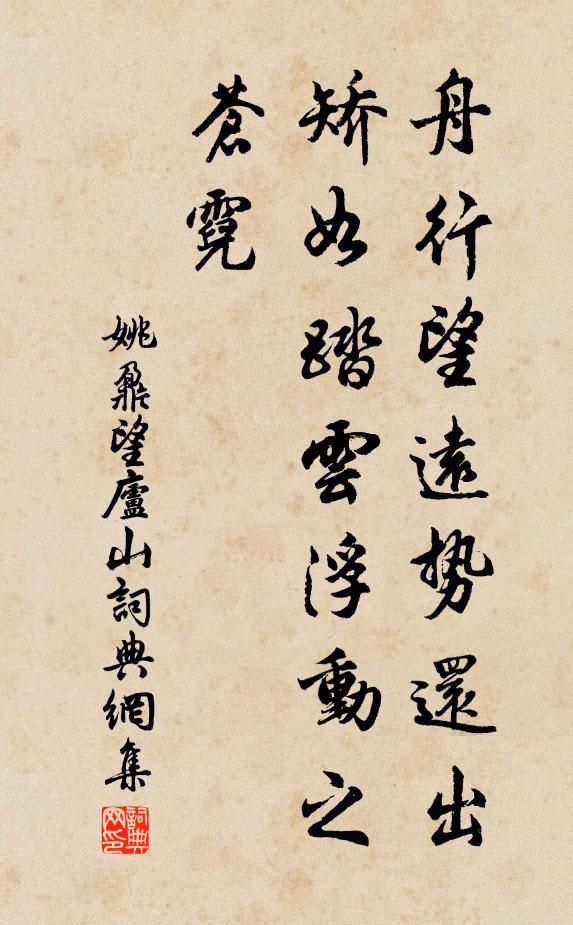 舟行望遠勢還出
矯如踏雲浮動之
蒼霓
姚鼐望廬山詞典網集
詞典网印